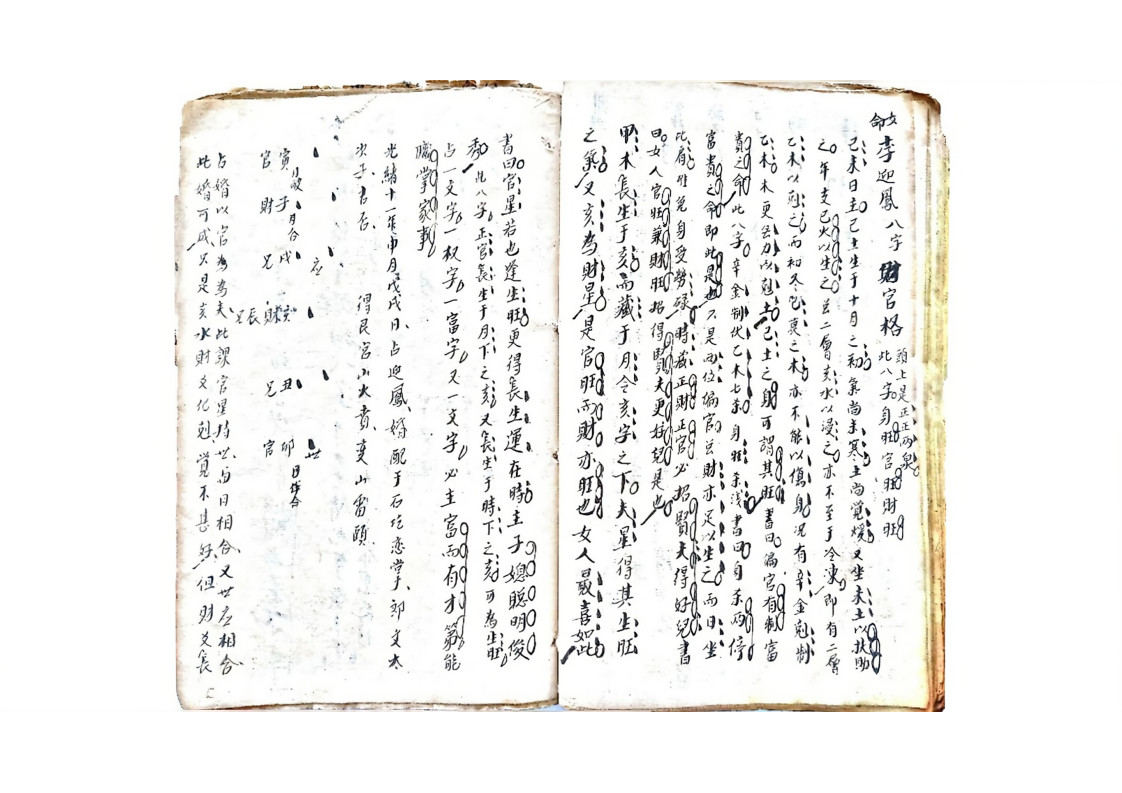 女命李迎鳳八字財官格
頭上是正正兩泉
此八字身旺官旺財旺
己未日主己土生于十月之初氣尚未寒土尚覺煖又坐未土以扶助
之年支巳火以生之呂二層亥水以浸之亦不至于冷凍即有二層
乙木以剋之而初冬乞衰之木亦不能以傷身况有辛金剋制
乙木木更無力以剋土己土之身可謂其旺書曰偏官有制富
貴之命此八字辛金制伏乙木七杀身旺杀淺書曰身杀兩停
富貴之命即此是也只是兩位偏官呂財亦足以生之而日坐
此肩难免自受勞碌時落正財正官必招賢夫得好兒書
曰女人官旺兼財旺招得賢夫更好兒是也
甲木長生于亥而藏于月令亥字之下夫星得其生旺
之氣又亥為財星是官旺而財亦旺也女人最喜如此
書曰官星若也逢生旺更得長生運在時主子媳聰明俊
秀此八字正官長生于月下之亥又長生于時下之亥可為生旺
占一文字一权字一富字又一文字必主富而有才第能
職掌家事
光緒十一年申月戊戌日占迎鳳婚配于石坑恋堂手郊文太
次子吉否 得艮宮山火賁变山雷頤
官寅
財子月合
兄戌应
財亥兄辰
兄丑
官卯日作合世
占婚以官為夫此課官星持世与日相合又世应相合
此婚可成只是亥水財爻化剋覺不甚好但財爻長